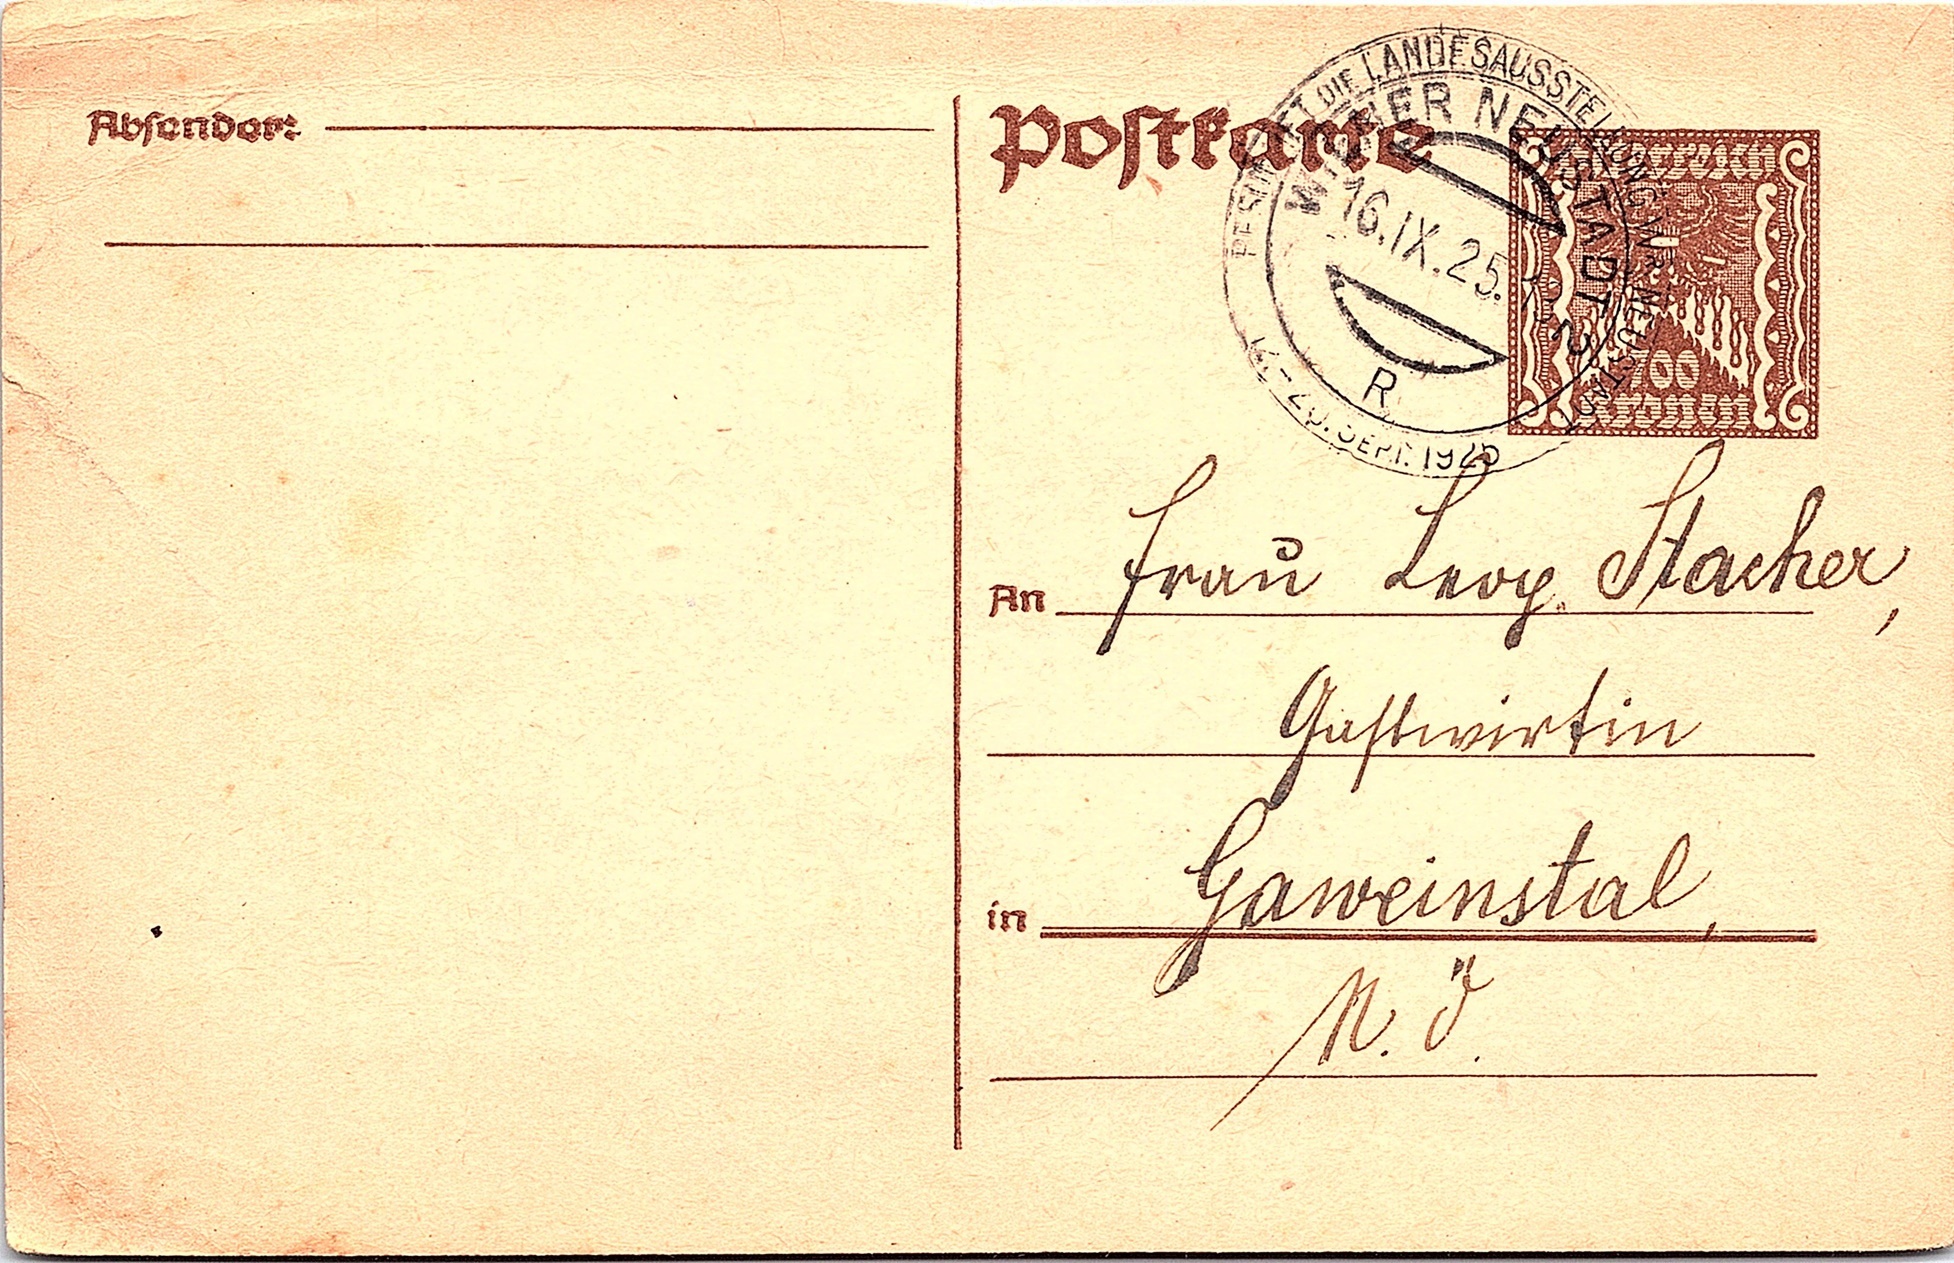 Absender:
Postkarte
BESUCHET DIE LANDESAUSSTELLUNG WR. NEUSTADT
WIENER NEUSTADT 2
16.IX.25.
R
SEPT. 1925
Österreich
700
Kronen
An Frau Leop. Stacher,
Gastwirtin
in Gaweinstal,
N. Ö.